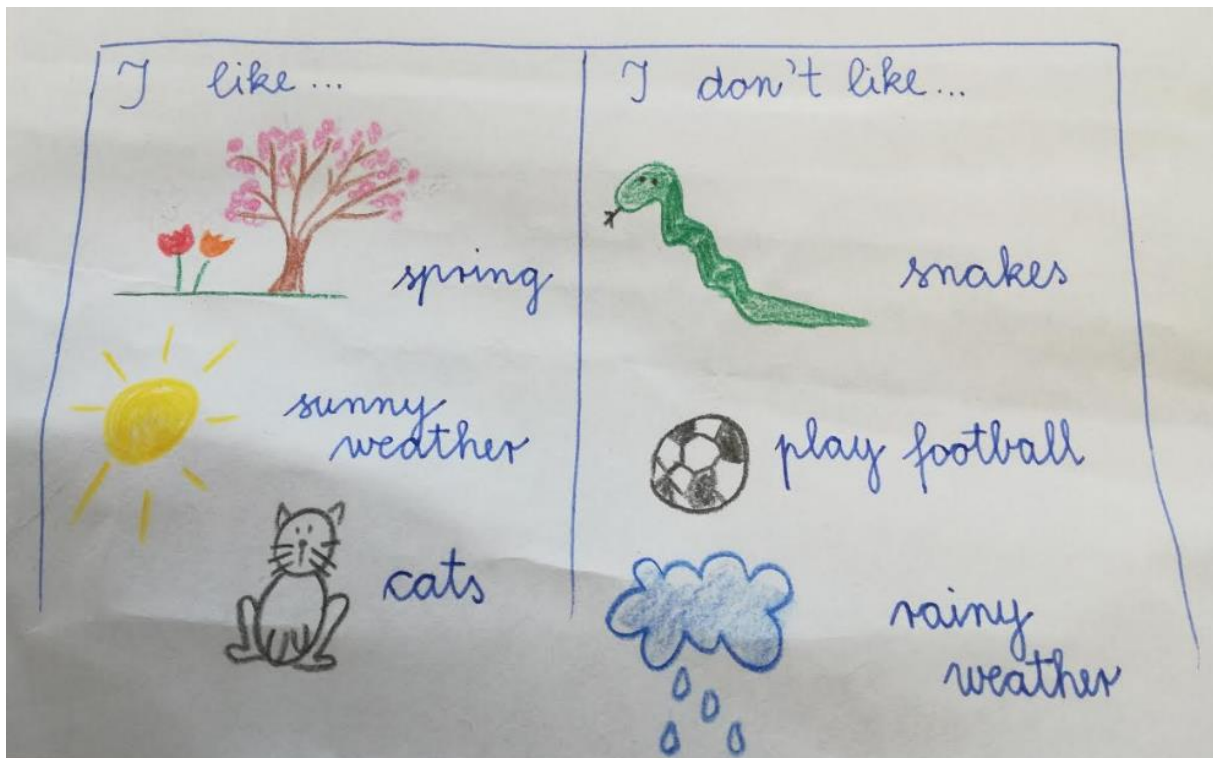 I like...
spring
sunny
weather
cats
I don't like...
snakes
play football
rainy
weather